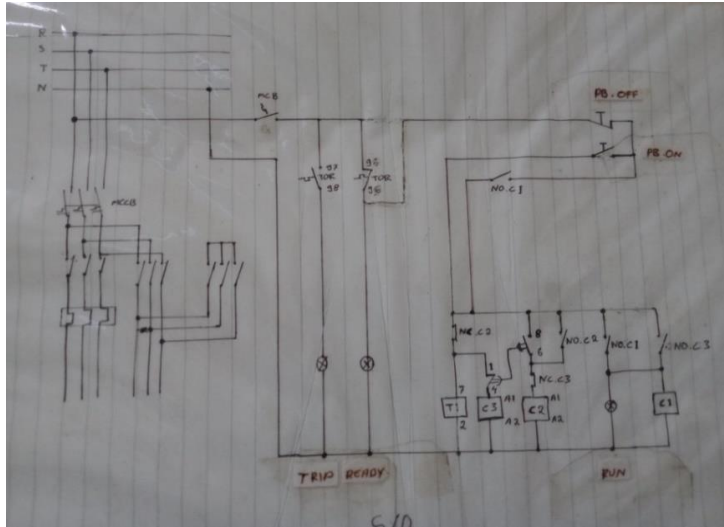 R
S
T
N
MCB
PB.OFF
PB.ON
97
TOR
98
96
TOR
95
NO.C1
MCCB
NC.C2
8
6
NO.C2
NO.C1
NO.C3
1
4
NC.C3
7
T1
2
C3
A1
A2
C2
A1
A2
C1
TRIP
READY
RUN